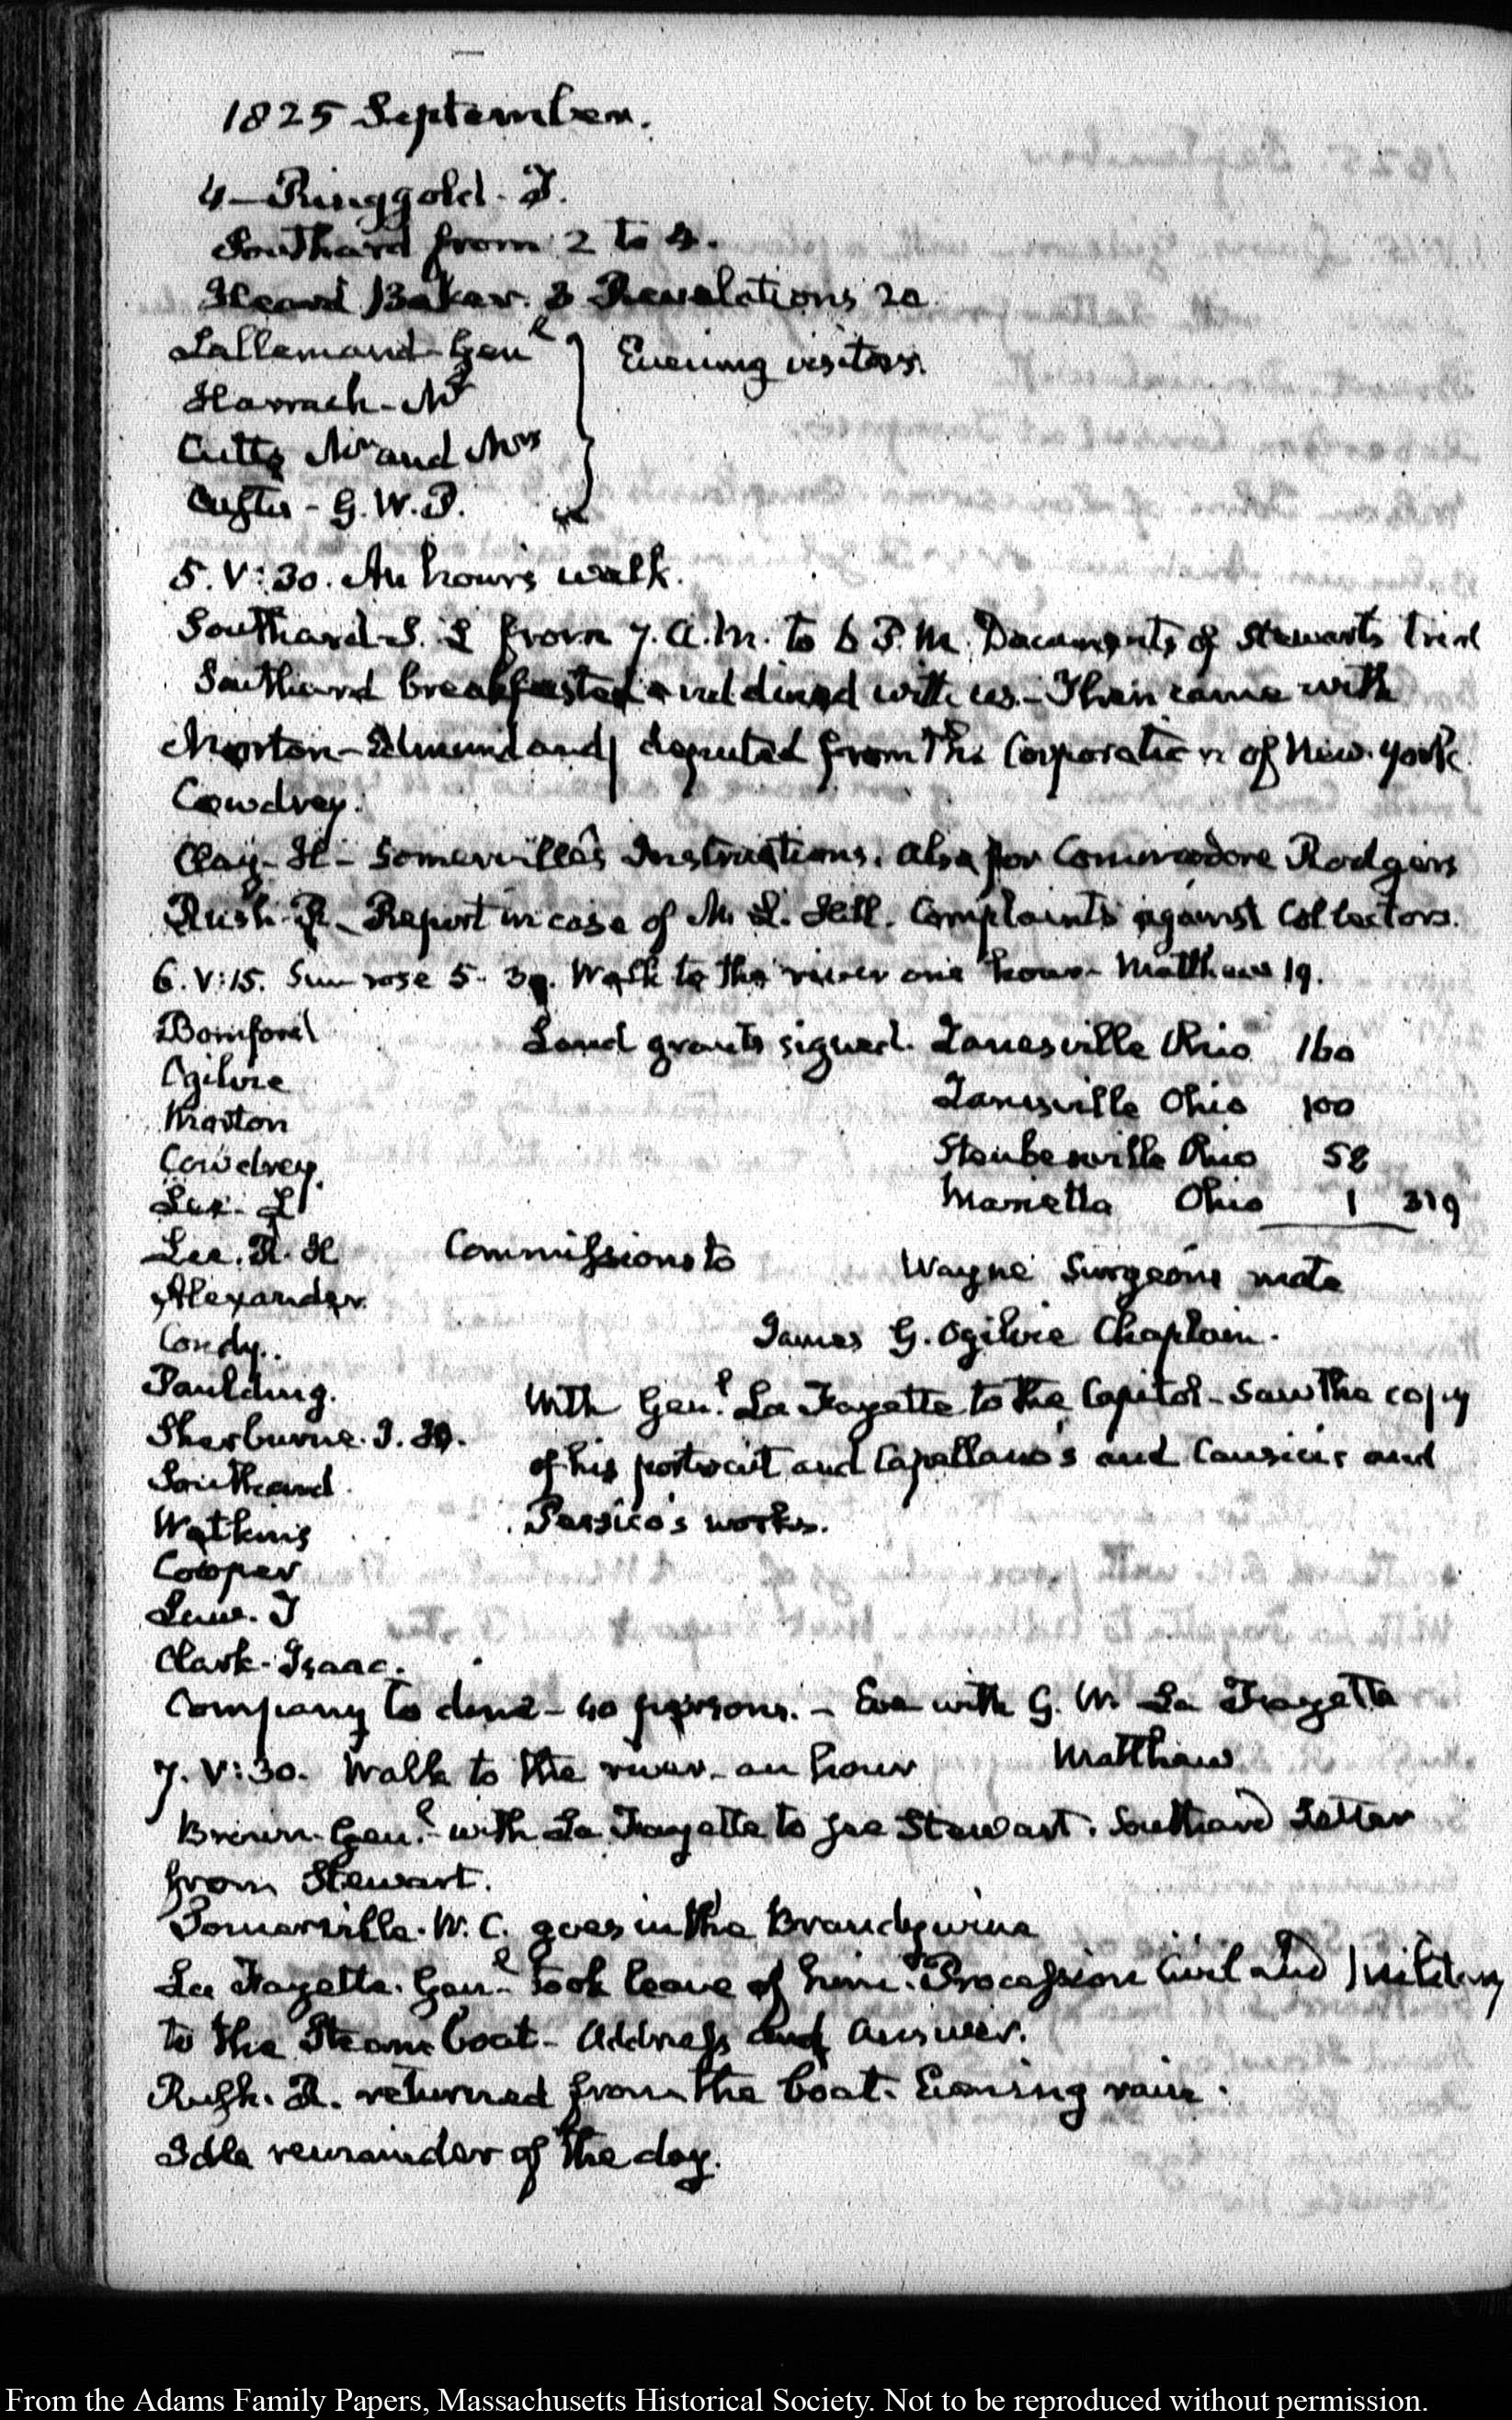 1825 September.
4—Ringgold. T.
Southard from 2 to 4.
Heard Baker. 3 Revelations 20
Lallemand—Genl } Evening visitors.
Harrach—Mr
Cutts Mr and Mrs
Custis—G. W. P.
5. V:30. An hour's walk.
Southard—S. L from 7. A.M. to 6 P.M. Documents of Stewarts trial
Southard breakfasted and dined with us.—Then came with
Morton—Edmund and deputed from The Corporation of New-York.
Cowdrey.
Clay—H— Somerville's Instructions. also for Commodore Rodgers
Rush—R— Report in case of M. L. Hill. Complaints against Collectors.
6. V:15. Sun rose 5-39. Walk to the river one hour—Matthew 19.
Bomford Land grants signed. Zanesville Ohio 160
Ogilvie Zanesville Ohio 100
Morton
Cowdrey. Steubenville Ohio 58
Lee. L Marietta Ohio 1 319
Lee. R. H Commissions to Wayne Surgeons mate
Alexander.
Condy. James G. Ogilvie Chaplain.
Paulding. With Genl. La Fayette to the Capitol—Saw The copy
Sherburne. J. H. of his portrait and Capellano's and Causici's and
Southard Persico's works.
Watkins
Cooper
Law. T
Clark—Isaac.
Company to dine—40 persons.—Eve with G. W. La Fayette
7. V:30. Walk to the river—an hour Matthew
Brown—Genl.—with La Fayette to see Stewart. Southard Letter
from Stewart.
Somerville. W. C. goes in the Brandywine
La Fayette. Genl— took leave of him. Procession Civil and Military
to the Steam boat—Address and answer.
Rush. R. returned from the boat. Evening rain.
Idle remainder of the day.
From the Adams Family Papers, Massachusetts Historical Society. Not to be reproduced without permission.